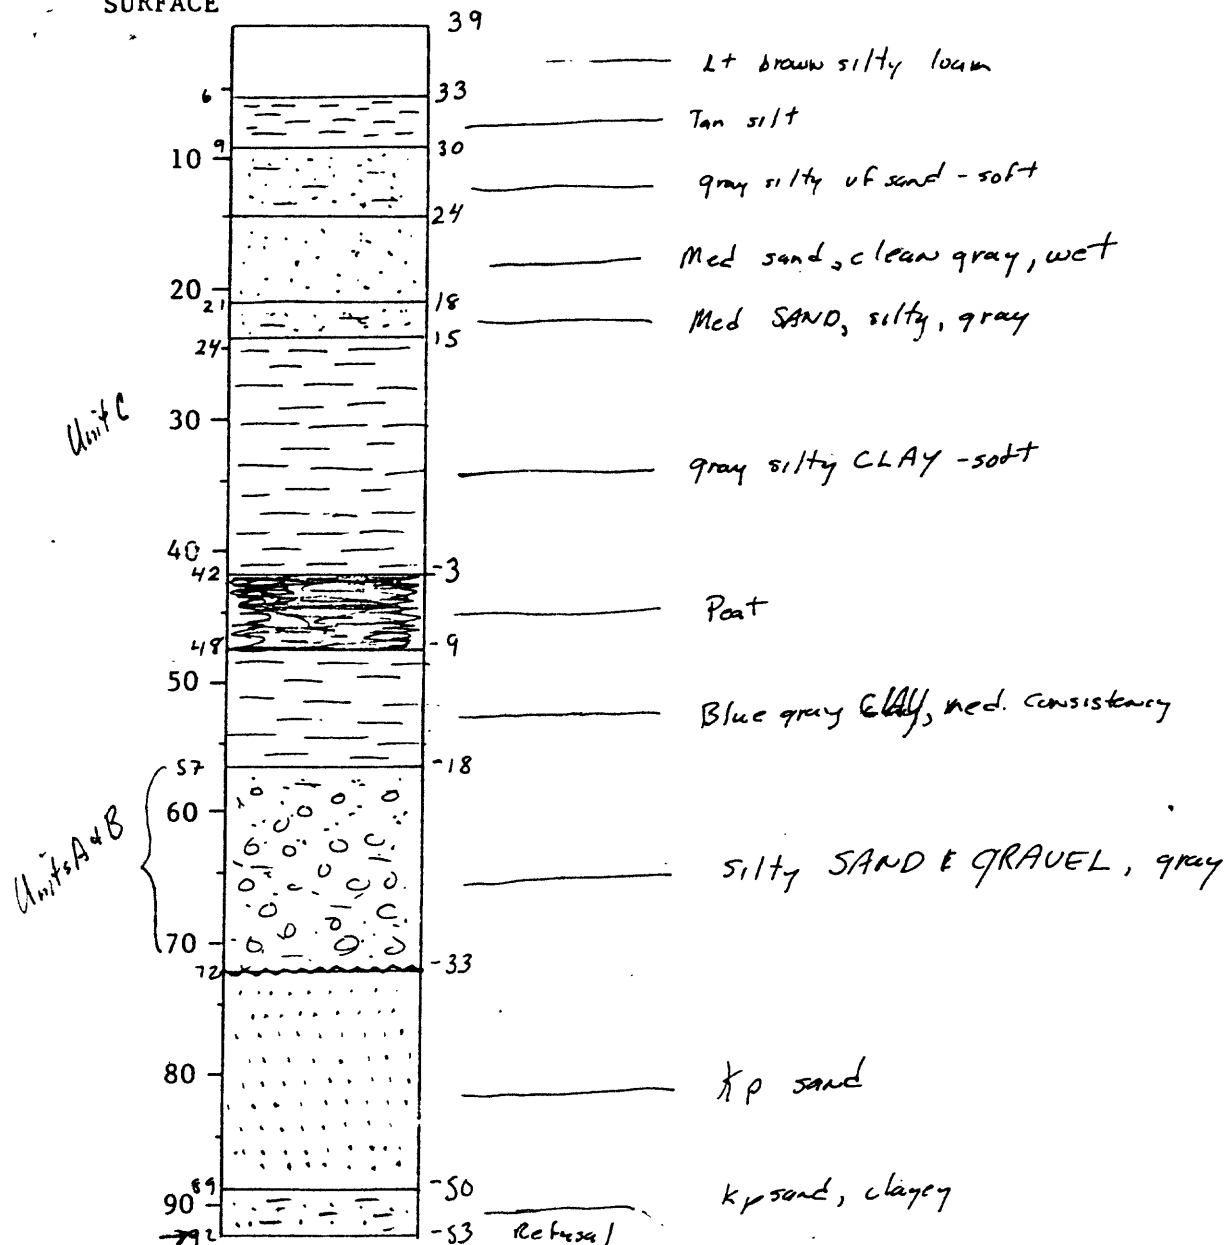 SURFACE
39
Lt brown silty loam
6
33
Tan silt
9
10
30
gray silty vf sand - soft
24
Med sand, clean gray, wet
20
21
18
Med SAND, silty, gray
24
15
Unit C
30
gray silty CLAY - soft
40
42
-3
Peat
48
-9
50
Blue gray CLAY, med. consistency
57
-18
60
Units A & B
silty SAND & GRAVEL, gray
70
72
-33
80
Kp sand
89
-50
90
Kp sand, clayey
92
-53
Refusal